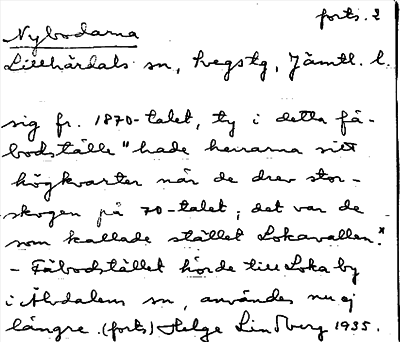 forts. 2
Nybodarna
Lillhärdals sn, Svegstg, Jämtl. l.
sig fr. 1870-talet, ty i detta fä-
bodställe "hade herrarna sitt
högkvarter när de drev stor-
skogen på 70-talet; det var de
som kallade stället Lokavallen."
- Fäbodstället hörde till Loka by
i Älvdalem sn, användes nu ej
längre. (forts) Helge Lindberg 1935.